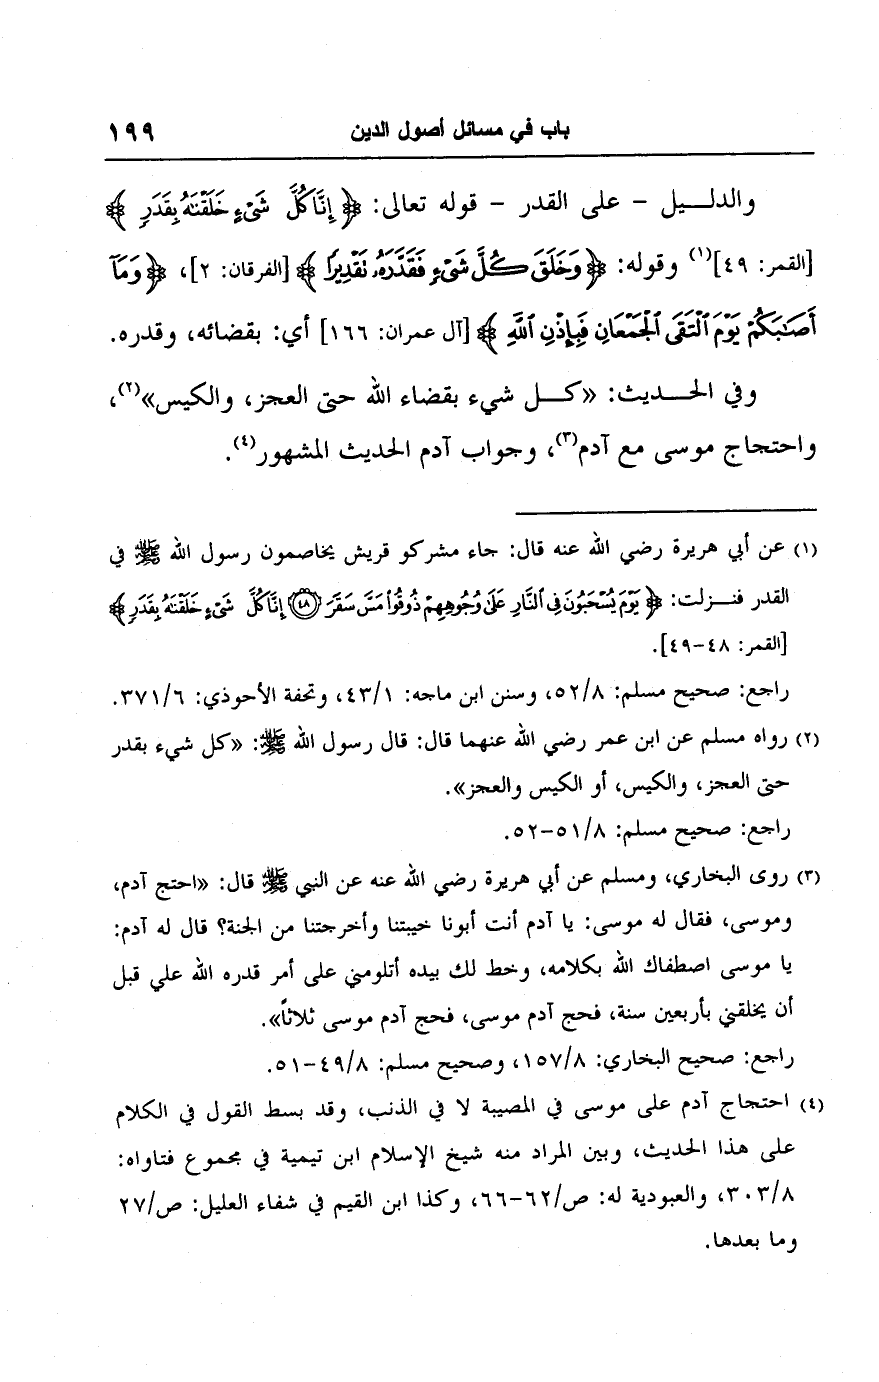 باب في مسائل أصول الدين ١٩٩
والدليل - على القدر - قوله تعالى: ﴿ إِنَّا كُلَّ شَىْءٍ خَلَقْنَٰهُ بِقَدَرٍ ﴾
[القمر: ٤٩](١) وقوله: ﴿ وَخَلَقَ كُلَّ شَىْءٍ فَقَدَّرَهُۥ نَقْدِيرًا ﴾ [الفرقان: ٢]، ﴿ وَمَآ
أَصَٰبَكُمْ يَوْمَ ٱلْتَقَى ٱلْجَمْعَانِ فَبِإِذْنِ ٱللَّهِ ﴾ [آل عمران: ١٦٦] أي: بقضائه، وقدره.
وفي الحديث: «كل شيء بقضاء الله حتى العجز، والكيس»(٢)،
واحتجاج موسى مع آدم(٣)، وجواب آدم الحديث المشهور(٤).
(١) عن أبي هريرة رضي الله عنه قال: جاء مشركو قريش يخاصمون رسول الله ﷺ في
القدر فنزلت: ﴿ يَوْمَ يُسْحَبُونَ فِى ٱلنَّارِ عَلَىٰ وُجُوهِهِمْ ذُوقُوا۟ مَسَّ سَقَرَ ٤٨ إِنَّا كُلَّ شَىْءٍ خَلَقْنَٰهُ بِقَدَرٍ ﴾
[القمر: ٤٨-٤٩].
راجع: صحيح مسلم: ٥٢/٨، وسنن ابن ماجه: ٤٣/١، وتحفة الأحوذي: ٣٧١/٦.
(٢) رواه مسلم عن ابن عمر رضي الله عنهما قال: قال رسول الله ﷺ: «كل شيء بقدر
حتى العجز، والكيس، أو الكيس والعجز».
راجع: صحيح مسلم: ٥١/٨-٥٢.
(٣) روى البخاري، ومسلم عن أبي هريرة رضي الله عنه عن النبي ﷺ قال: «احتج آدم،
وموسى، فقال له موسى: يا آدم أنت أبونا خيبتنا وأخرجتنا من الجنة؟ قال له آدم:
يا موسى اصطفاك الله بكلامه، وخط لك بيده أتلومني على أمر قدره الله علي قبل
أن يخلقني بأربعين سنة، فحج آدم موسى، فحج آدم موسى ثلاثاً».
راجع: صحيح البخاري: ١٥٧/٨، وصحيح مسلم: ٤٩/٨-٥١.
(٤) احتجاج آدم على موسى في المصيبة لا في الذنب، وقد بسط القول في الكلام
على هذا الحديث، وبين المراد منه شيخ الإسلام ابن تيمية في مجموع فتاواه:
٣٠٣/٨، والعبودية له: ص/٦٢-٦٦، وكذا ابن القيم في شفاء العليل: ص/٢٧
وما بعدها.